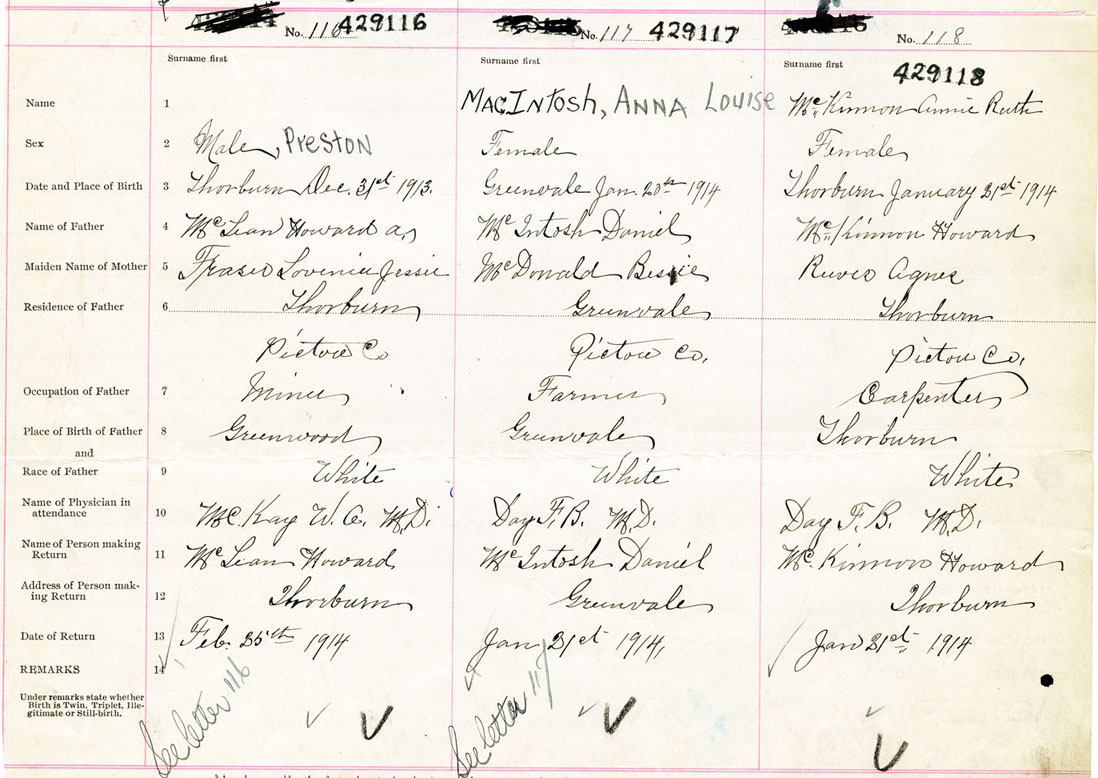 No. 116 429116 No. 117 429117 No. 118
Surname first Surname first Surname first 429118
Name 1 MacIntosh, Anna Louise McKinnon Annie Ruth
Sex 2 Male, Preston Female Female
Date and Place of Birth 3 Thorburn Dec. 31st 1913. Greenvale Jan. 20th 1914 Thorburn January 21st 1914
Name of Father 4 McLean Howard a. McIntosh Daniel McKinnon Howard
Maiden Name of Mother 5 Fraser Lovenia Jessie McDonald Bessie Agnes
Residence of Father 6 Thorburn Greenvale Thorburn
Pictou Co Pictou Co. Pictou Co.
Occupation of Father 7 Miner Farmer Carpenter
Place of Birth of Father 8 Greenwood Greenvale Thorburn
and
Race of Father 9 White White White
Name of Physician in
attendance 10 McKay W. G. M.D. Day F. B. M.D. Day F. B. M.D.
Name of Person making
Return 11 McLean Howard McIntosh Daniel McKinnon Howard
Address of Person mak-
ing Return 12 Thorburn Greenvale Thorburn
Date of Return 13 Feb. 25th 1914 Jan 21st 1914, Jan 21st 1914
REMARKS 14
Under remarks state whether
Birth is Twin, Triplet, Ille-
gitimate or Still-birth.
See letter 116
See letter 117